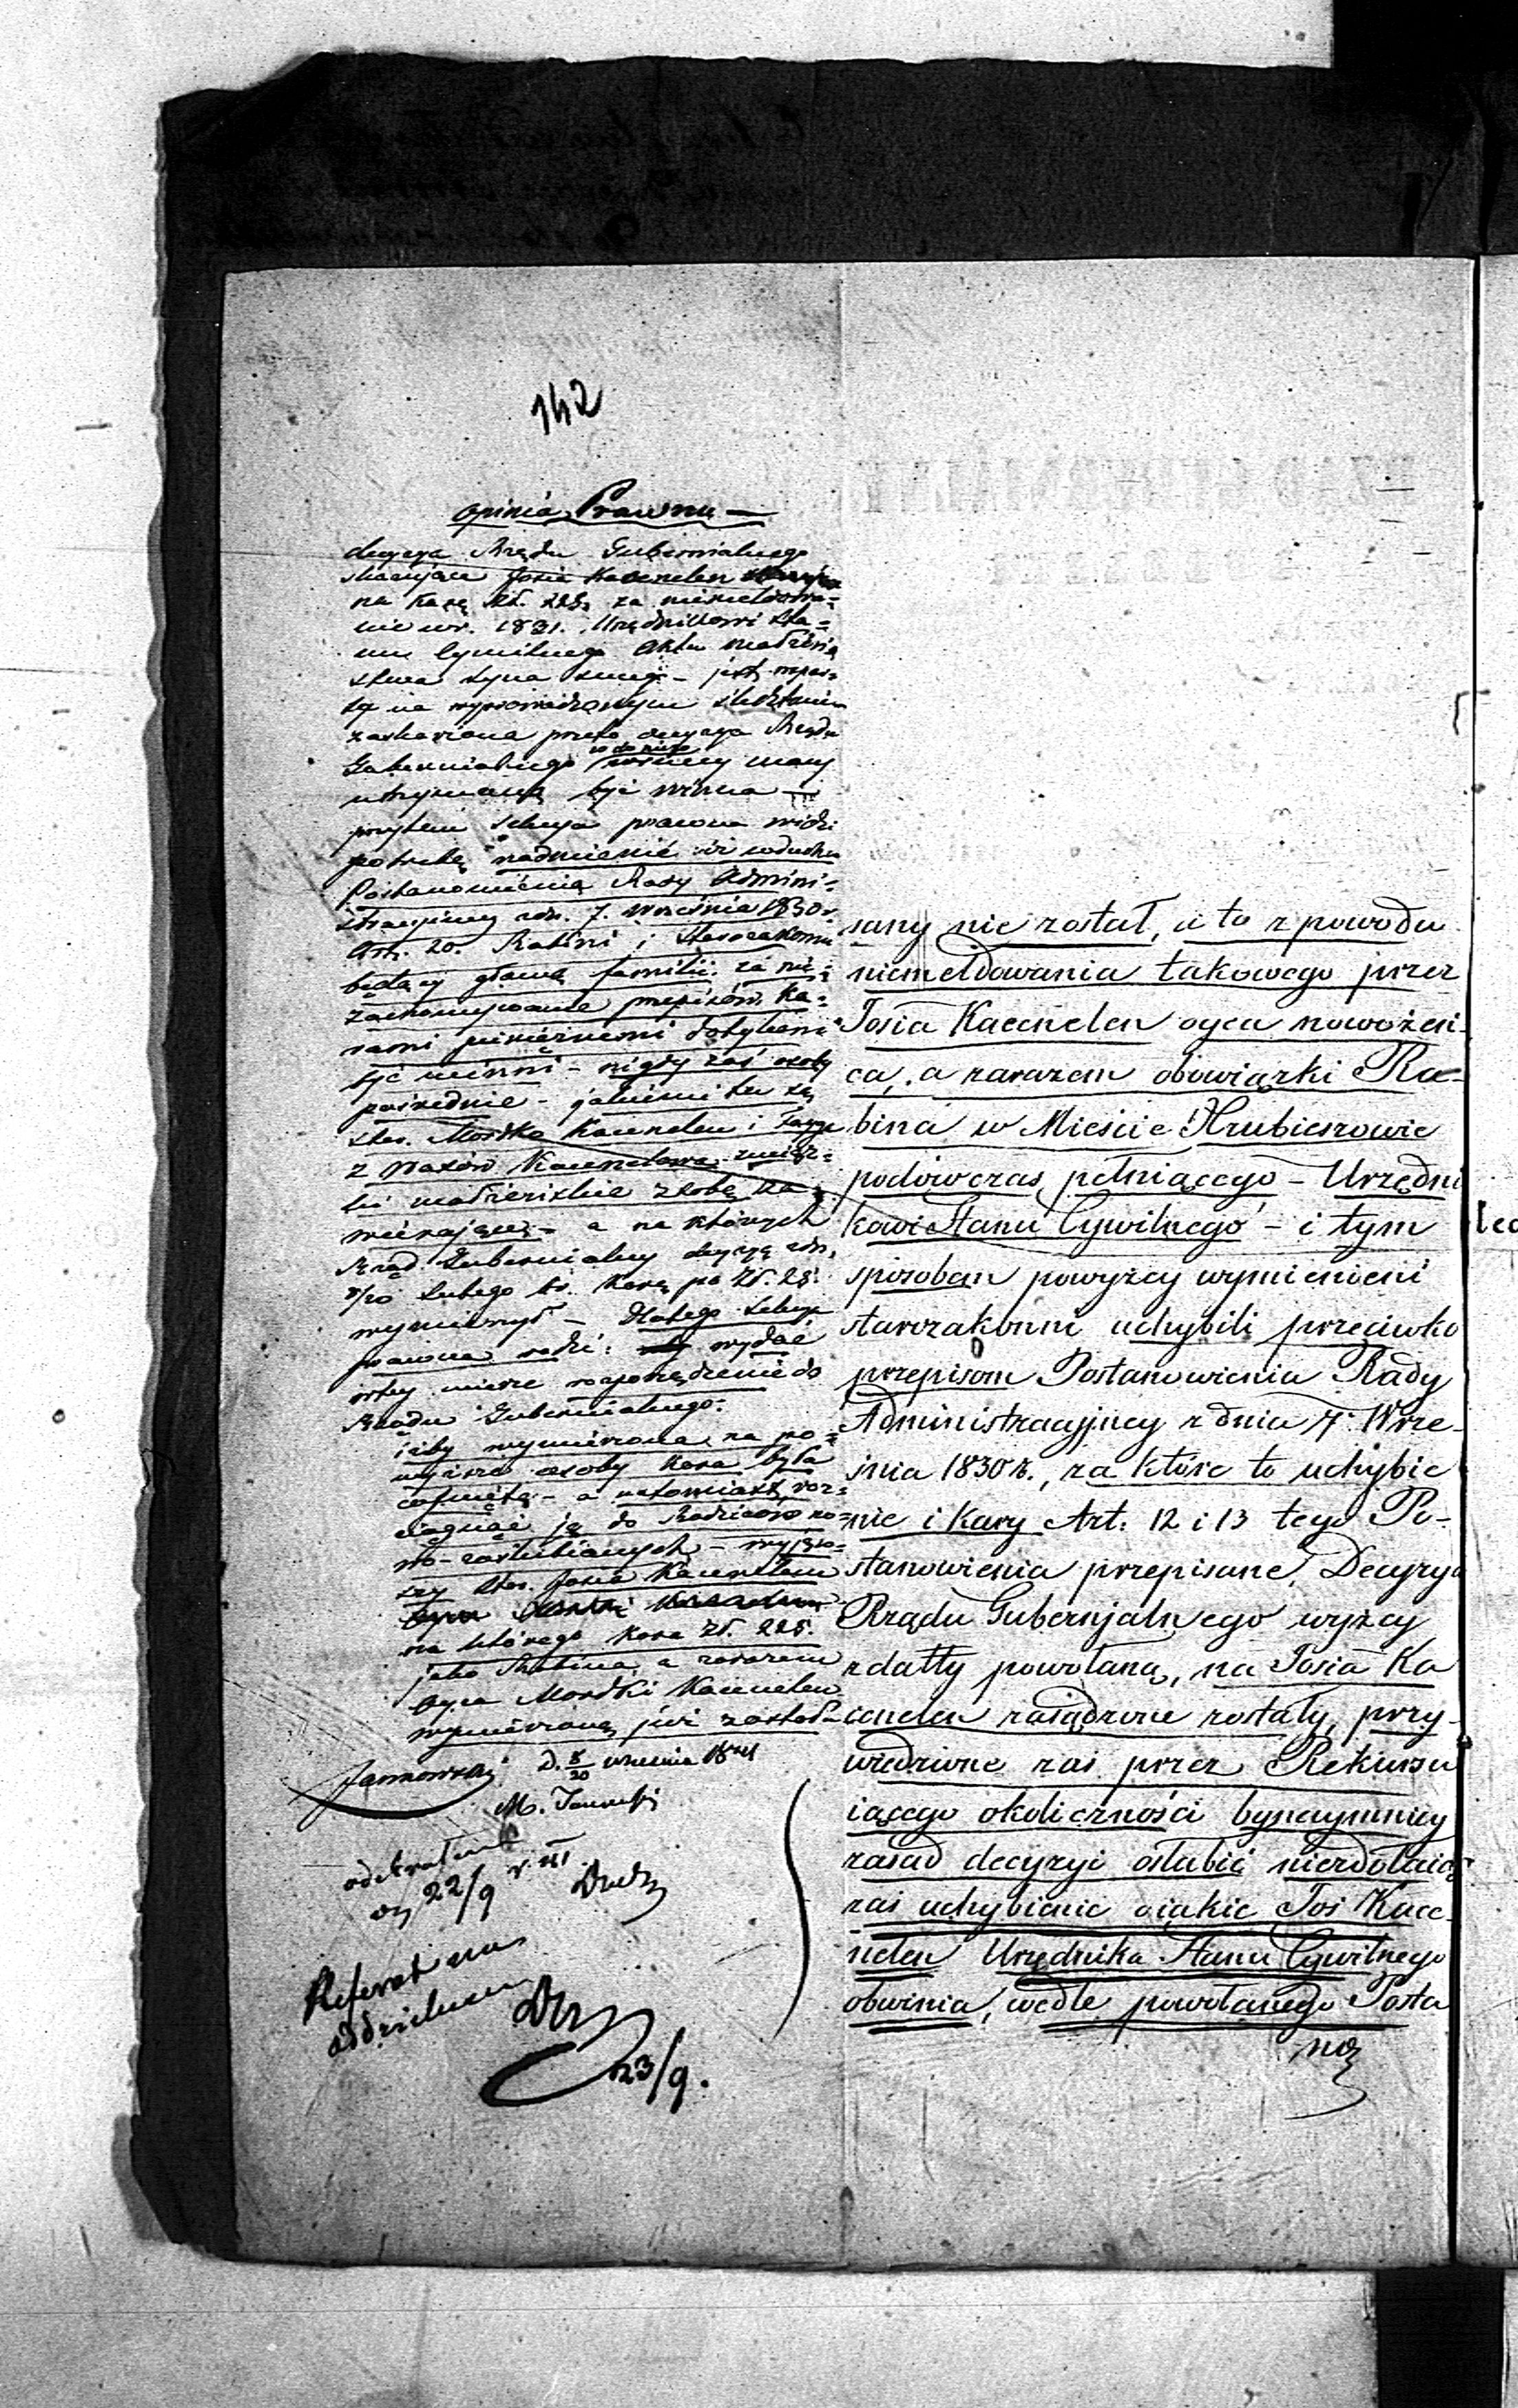 142
Opinia Prawna —
decyzya Rządu Gubernialnego
skazująca Josia Kacenelen
na karę Zł. 225, za niemeldowa-
nie w r. 1831. Urzędnikowi Sta-
nu Cywilnego Aktu małżeń
stwa syna swego – jest opar-
tą na wyprowadzonym śledztwie
zaskarżona przeto decyzya Rządu
Gubernialnego w swej mocy
utrzymaną być winna —
przytem Sekcya prawna widzi
potrzebę nadmienić iż w duchu
Postanowienia Rady Admini-
stracyjney z dn. 7. Września 1830 r.
Art. 20. Rabini i Starozakonni
będący głową familii za nie-
zachowywanie przepisów, ka-
rami pieniężnemi dotykani
być winni – nigdy zaś osoby
pośrednie – jakiemi tu są
star. Mordko Kacenelen i
z Kacenelenowa związ-
ki małżeńskie z sobą za-
wierający – a na których
Rząd Gubernialny decyzyą z dn.
8/20 Lutego br. karę po Zł. 25.
wymierzył – Dlatego Sekcya
prawna radzi: wydać
w tey mierze rozporządzenie do
Rządu Gubernialnego:
iżby wymierzona na po-
wyższe osoby kara była
cofnięta – a natomiast roz-
ciągnąć ją do Rodziców no-
wo-zaślubionych – wyjąw-
szy star. Josia Kacenelen
na którego kara Zł. 225.
jako Rabina, a zarazem
Oyca Mordki Kacenelen
wymierzoną już została
Jannowski d. 8/20 września 1841
odebrałem
22/9
Referat na
oddzielnem
23/9.
sany nie został, a to z powodu
niemeldowania takowego przez
Josia Kacenelen oyca nowożeń-
ca, a zarazem obowiązki Ra-
bina w Mieście Hrubieszowie
podówczas pełniącego – Urzędni
kowi Stanu Cywilnego – i tym
sposobem powyżey wymienieni
starozakonni uchybili przeciwko
przepisom Postanowienia Rady
Administracyjney z dnia 7. Wrze-
śnia 1830 r., za które to uchybie
nie i Kary Art: 12 i 13 tego Po-
stanowienia przepisane, Decyzyą
Rządu Gubernjalnego wyżey
z datty powołaną, na Josia Ka
cenelen zasądzone zostały, przy-
wiedzione zaś przez Rekursu
iącego okoliczności bynaymniey
zasad decyzyi osłabić niezdołaią
zaś uchybienie o iakie Joś Kace-
nelen Urzędnika Stanu Cywilnego
obwinia, wedle powołanego Posta
no